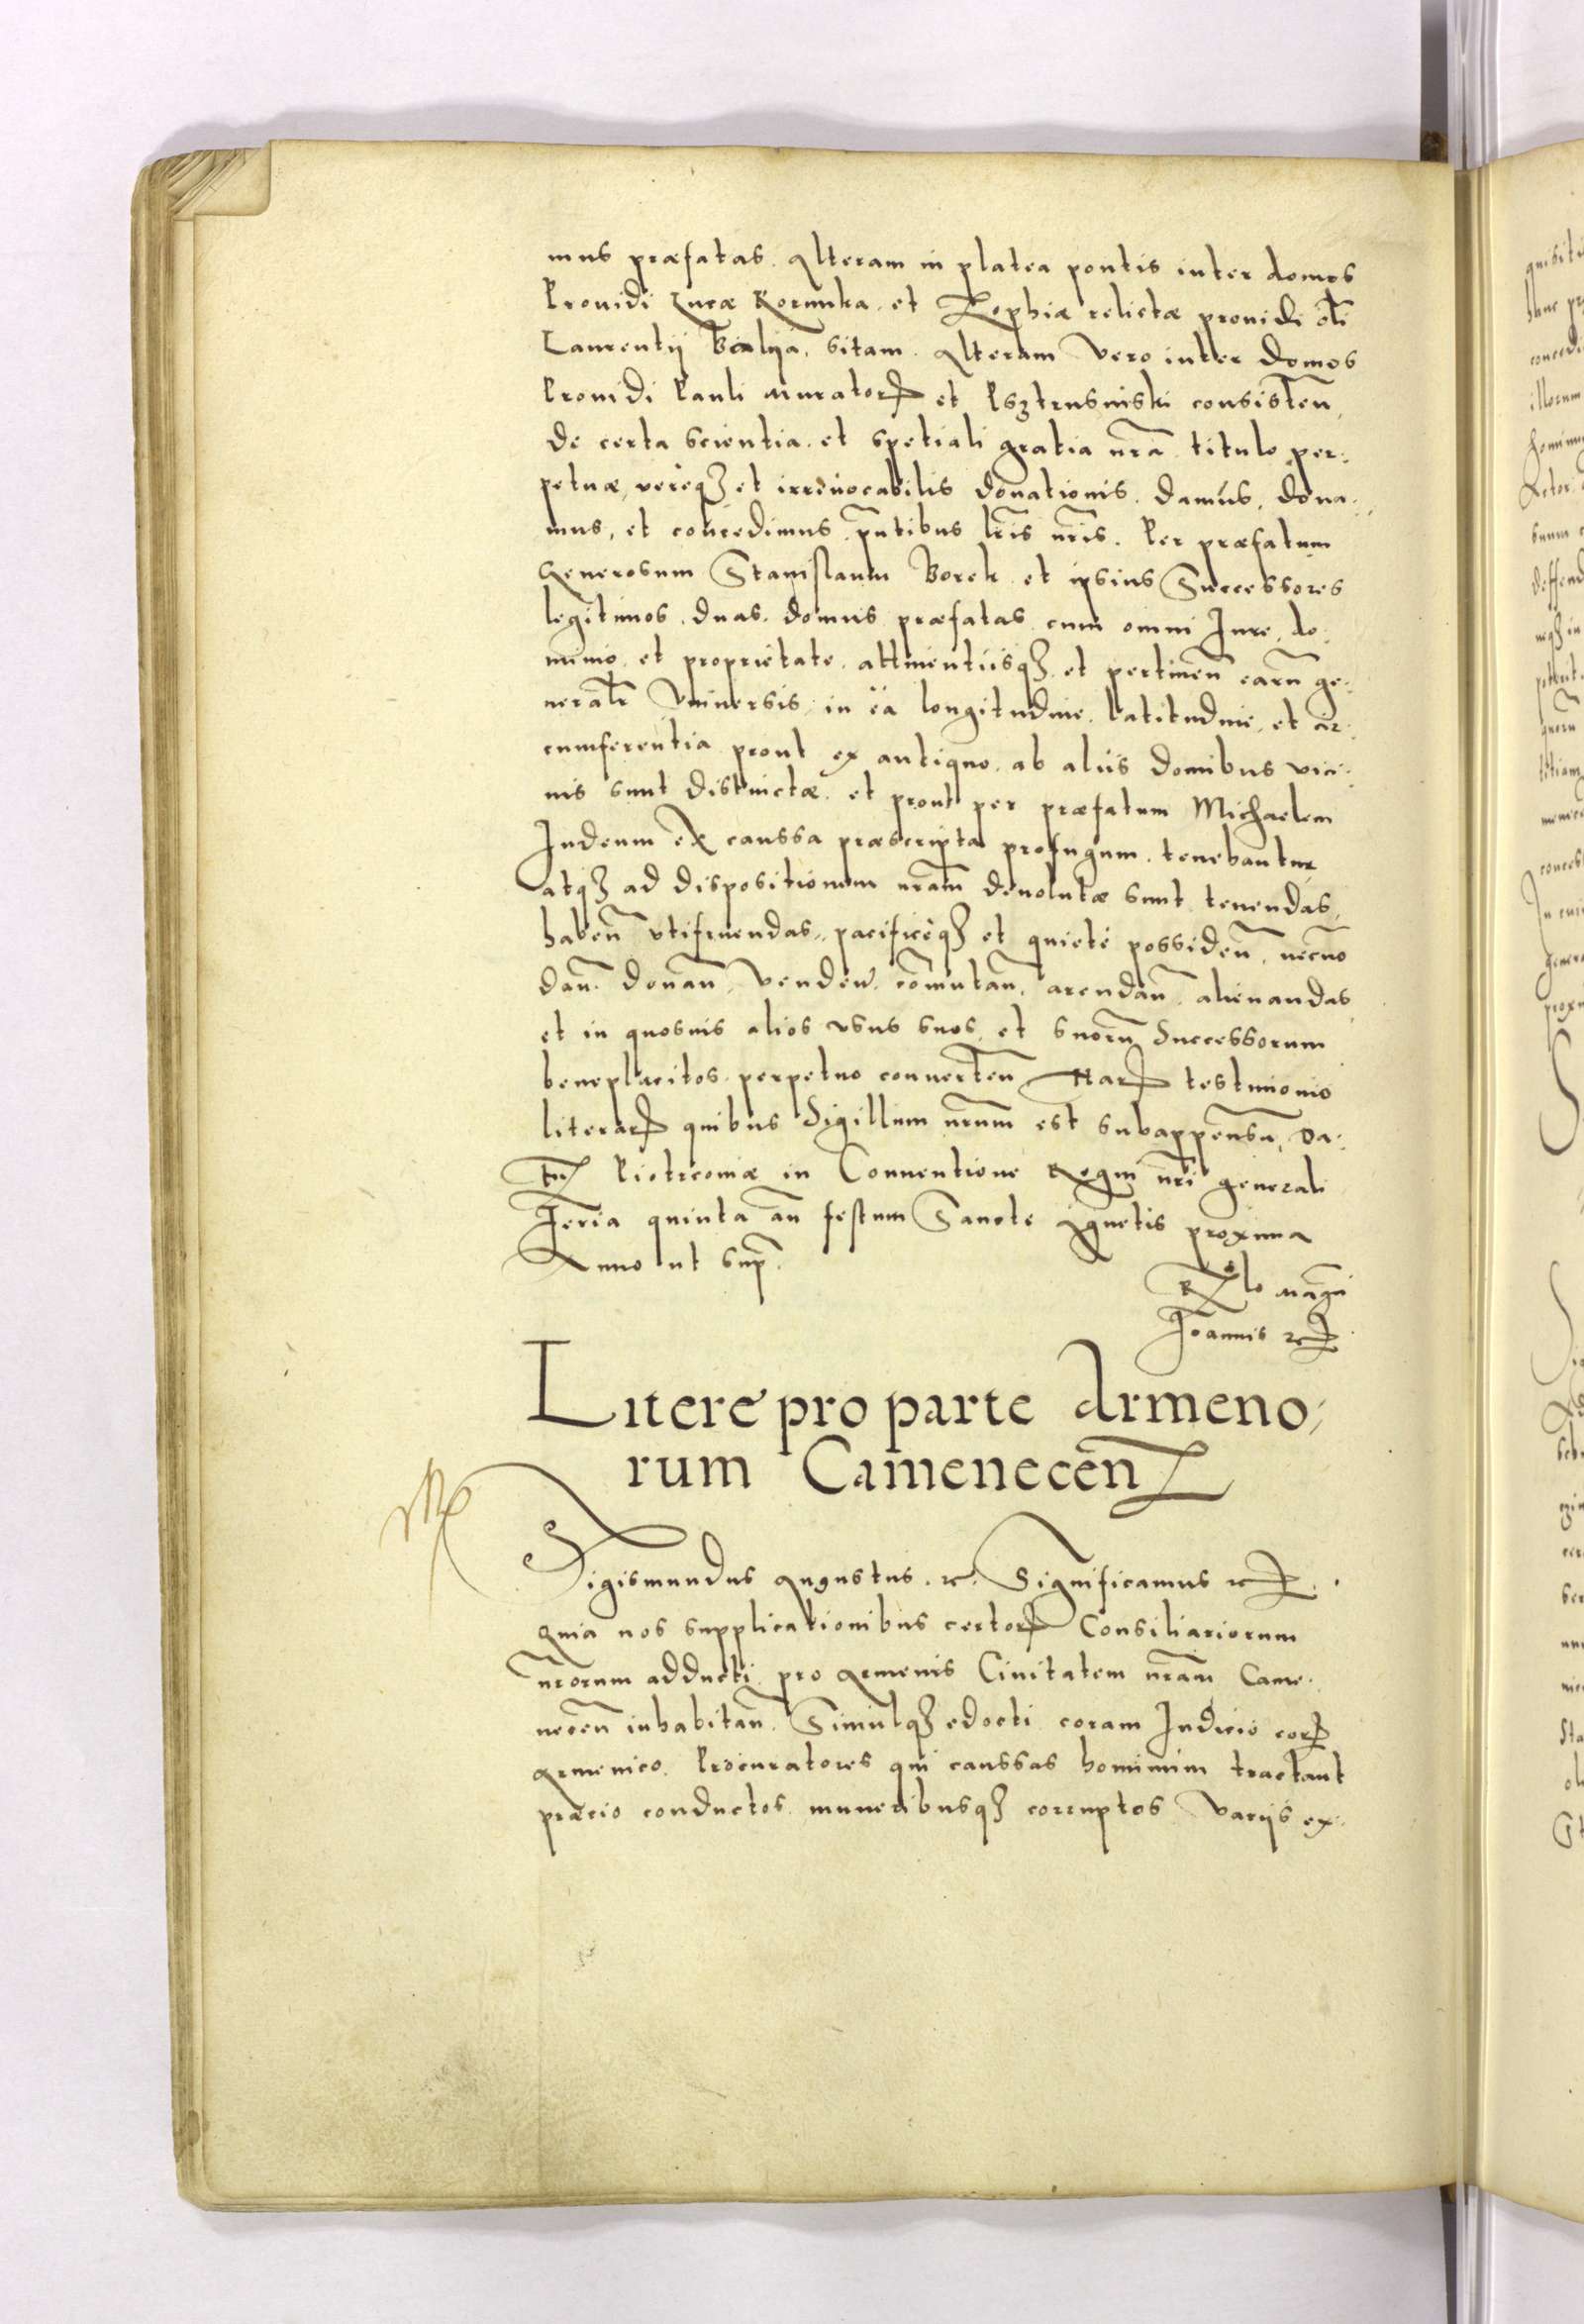 mus præfatas. Alteram in platea pontis inter domos
Prouidi Lucæ Korunka. et Zophiæ relictæ prouidi oli
Laurentij sitam. Alteram vero inter domos
Prouidi Pauli muratorꝝ et consisten̄,
de certa scientia. et spetiali gratia nr̄a titulo per-
petuæ, vereqȝ et irreuocabilis donationis. damus, dona-
mus, et concedimus p̄ntibus lr̄is nr̄is. Per præfatum
Generosum Stanislaum Borek et ipsius Successores
legitimos. duas. domus præfatas cum omni Jure, do-
minio et proprietate. attinentiisqȝ et pertinen̄ earū ge-
neral̄r Vniuersis in ea longitudine, latitudine, et cir-
cumferentia prout ex antiquo. ab aliis domibus vici-
nis sunt distinctæ. et prout per præfatum Michaelem
Judeum ex caussa præscripta profugum. tenebantur
atqȝ ad dispositionem nr̄am deuolutæ sunt tenendas,
haben̄ vtifruendas, pacificeqȝ et quiete possiden̄, necno
dan̄. donan̄, venden̄. com̄utan̄, arendan̄ alienandas
et in quosuis alios vsus suos et suorū Successorum
beneplacitos perpetuo conuerten̄ Harꝝ testimonio
literarꝝ quibus Sigillum nr̄um est subappensū, Da-
tū Piotrcouiæ in Conuentione Regni nr̄i generali
Feria quinta an̄ festum Sancte Agnetis proxima
Anno ut sup̄.
R̄lo magci
Joannis ꝛc
Litere pro parte Armeno-
rum Camenecen̄
Sigismundus Augustus. ꝛc. Significamus ꝛc.
Quia nos supplicationibus certorꝝ Consiliariorum
nr̄orum adducti pro Armenis Ciuitatem nr̄am Came-
necen̄ inhabitan̄. Simulqȝ edocti coram Judicio eorꝝ
Armenico. Procuratores qui caussas hominum tractant
præcio conductos muneribusqȝ corruptos varijs ex-